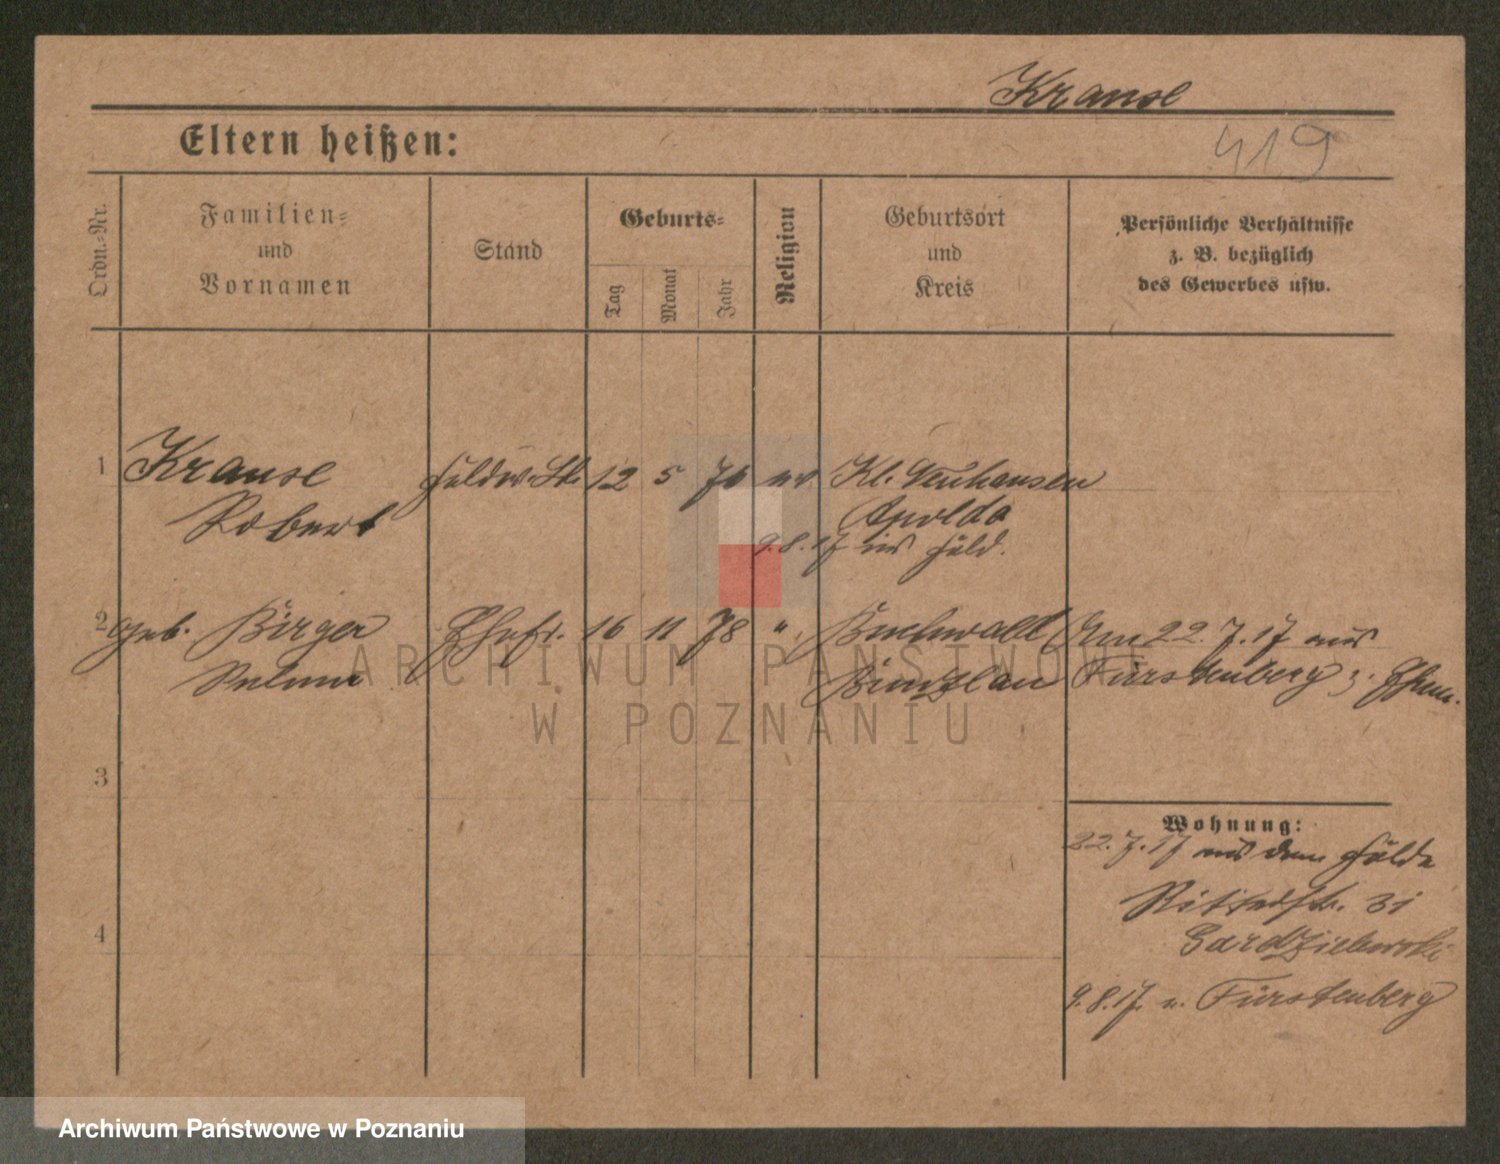 Krause
Eltern heißen:
419
Ordn.-Nr.
Familien-
und
Vornamen
Stand
Geburts-
Tag
Monat
Jahr
Religion
Geburtsort
und
Kreis
Persönliche Verhältnisse
z. B. bezüglich
des Gewerbes usw.
1
Krause
Robert
12 5 76 ev
Kl. Neuhausen
Apolda
9.8.17 ins Feld.
2
geb. Birger
Selma
Ehefr. 16 11 78 "
Buchwald
Bunzlau
Am 22.7.17 aus
Fürstenberg z. Ehem.
3
4
Wohnung:
22.7.17 aus dem Felde
Ritterstr. 31
Gardzielewski
9.8.17. n. Fürstenberg
ARCHIWUM PAŃSTWOWE
W POZNANIU
Archiwum Państwowe w Poznaniu